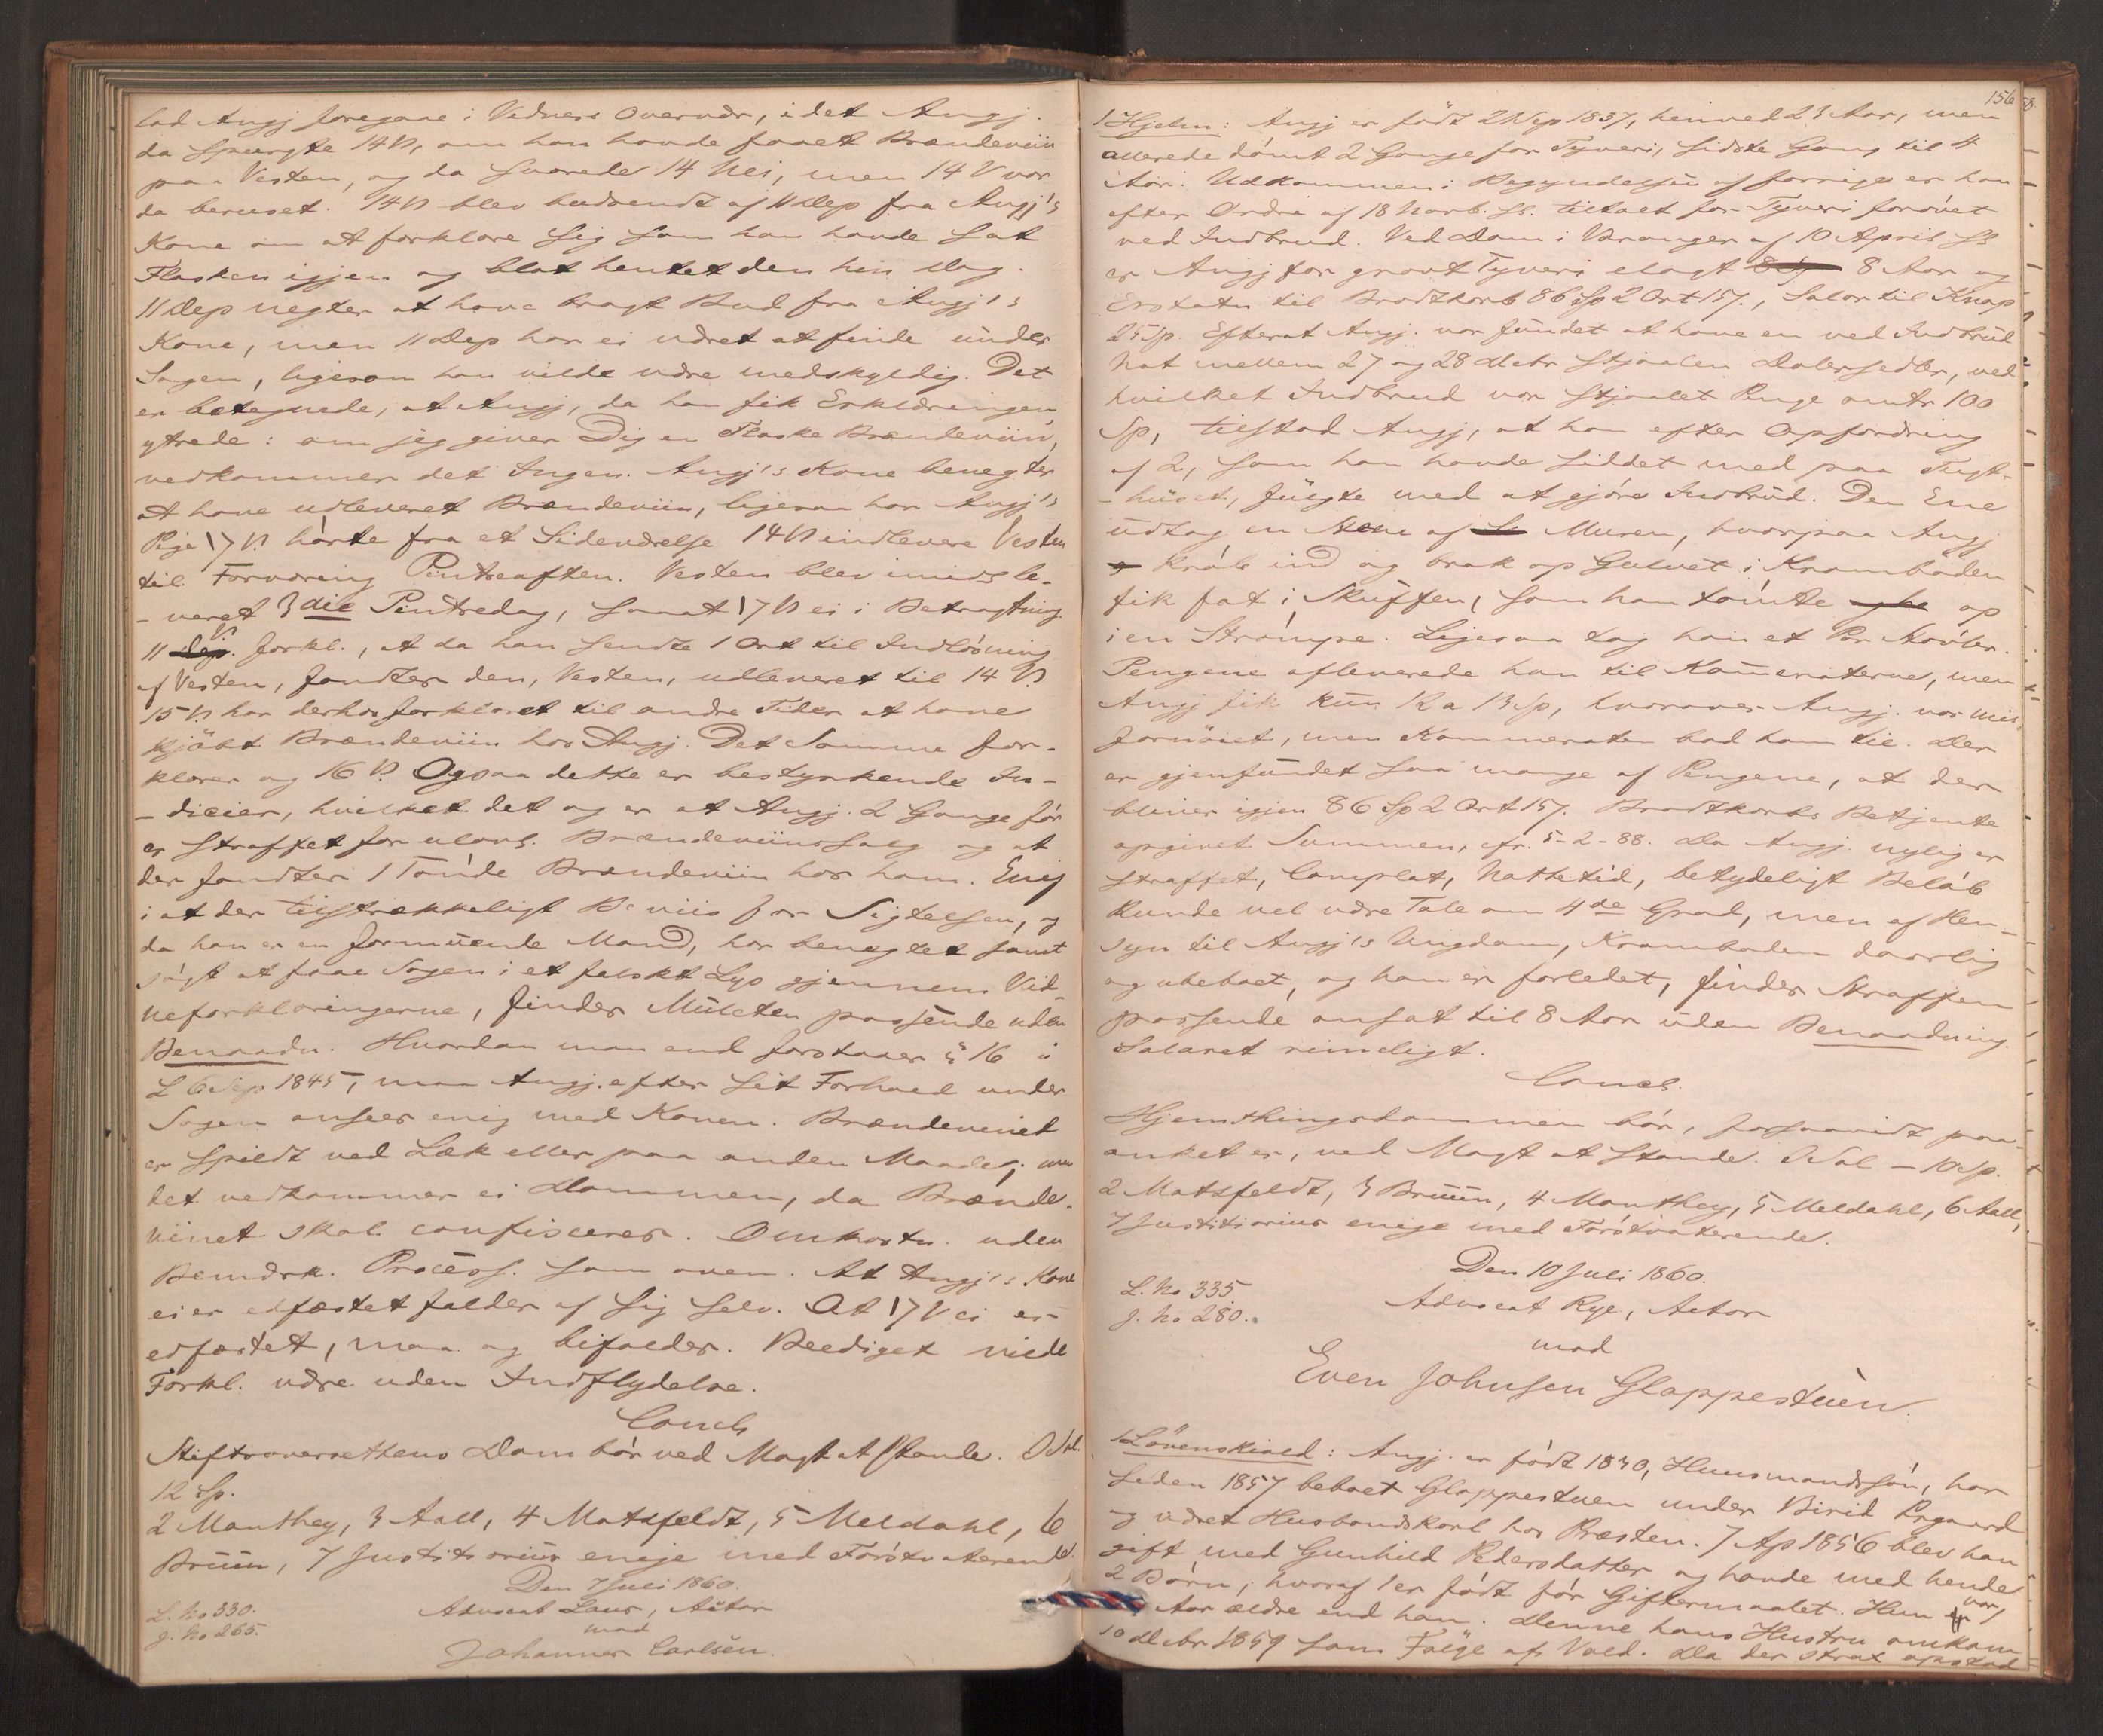 lod Angj foregaae i Vidners Overvær, idet Angj.
da spurgte 14 V, om han havde faaet Brændeviin
paa Vesten, og da svarede 14 Nei, men 14 V var
da beruset. 14 V blev budsendt af 11 Dep fra Angj's
Kone om at forklare sig som han havde sat
Flasken igjen og blot hentet den hin Dag.
11 Dep negter at have bragt Bud fra Angj's
Kone, men 11 Dep har ei været at finde under
Sagen, ligesom han vilde være medskyldig. Det
er betegnede, at Angj, da han fik Erklæringen
ytrede: om jeg giver Dig en Flaske Brændeviin,
vedkommer det Ingen. Angj's Kone benegter
at have udleveret Brændeviin, ligesom har Angj's
Pige 17 V. hørte fra et Sideværelse 14 V indlevere Vesten
til Forvaring Pintseaften. Vesten blev imidl le-
-veret 3die Pintsedag, saa at 17 V ei i Betragtning
11 V. forkl., at da han sendte 1 Ort til Indløsning
af Vesten, fandtes den, Vesten, udleveret til 14 V.
15 V har derhos forklaret til andre Tider at have
kjøbt Brændeviin hos Angj. Det Samme for-
klarer og 16 V. Ogsaa dette er bestyrkende In-
-dicier, hvilket det og er at Angj. 2 Gange før
er straffet for ulovl. Brændeviinssalg og at
der fandtes 1 Tønde Brændeviin hos ham. Enig
i at der tilstrækkeligt Beviis for Sigtelsen, og
da han er en formuende Mand, har benegtet samt
søgt at faae Sagen i et falskt Lys gjennem Vid-
neforklaringerne, finder Mulcten passende uden
Benaadn. Hvordan man end forstaaer § 16 i
L 6 Sep 1845, maa Angj. efter sit Forhold under
Sagen ansees enig med Konen. Brændevinet
er spildt ved Læk eller paa anden Maade; men
det vedkommer ei Dommen, da Brænde-
vinet skal confisceres. Omkostn. uden
Bemærk. Process. som oven. At Angj's Kone
ei er edfæstet falder af sig selv. At 17 V ei er
edfæstet, maa og bifaldes. Beediget vilde
Forkl. være uden Indflydelse.
Concl
Stiftsoverrettens Dom bør ved Magt at stande. D Sal.
12 Sp.
2 Manthey, 3 Aall, 4 Motzfeldt, 5 Meldahl, 6
Bruun, 7 Justitiarius enige med Førstvoterende.
Den 7 Juli 1860.
L. No 330.
J. No 265.
Advocat Laur, Actor
mod
Johannes Carlsen.
156
1 Hjelm: Angj er født 2 Sep 1837, henved 23 Aar, men
allerede dømt 2 Gange for Tyveri, sidste Gang til 4
Aar. Udkommen i Begyndelsen af forrige er han
efter Ordre af 18 Novb. f.A. tiltalt for Tyveri forøvet
ved Indbrud. Ved Dom i Varanger af 10 April s.A
er Angj for grovt Tyveri ilagt 8 Aar og
Erstatn til Brodtkorb 86 Sp 2 Ort 15 ?., Salær til Knap
25 Sp. Efterat Angj. var fundet at have en ved Indbrud
Nat mellem 27 og 28 Debr stjaalen Dalersedler, ved
hvilket Indbrud var stjaalet Penge omtr 100
Sp, tilstod Angj, at han efter Opfordring
af 2, som han havde siddet med paa Tugt-
-huset, fulgte med at gjøre Indbrud. Den Ene
udtog en Steen af Muren, hvorpaa Angj
krøb ind og brak op Gulvet i Kramboden
fik fat i Skuffen, som han tømte op
i en Strømpe. Ligesaa tog han et Par Støvler.
Pengene afleverede han til Kameraterne, men
Angj fik kun 12 a 13 Sp, hvorover Angj. var mis-
fornøiet, men Kammeraten bad ham tie. Der
er gjenfundet saa mange af Pengene, at der
bliver igjen 86 Sp 2 Ort 15 ?. Brodtkorbs Betjente
opgivet Summen, cfr. 5-2-88. Da Angj. nylig er
straffet, Complot, Nattetid, betydeligt Beløb
kunde vel være Tale om 4de Grad, men af Hen-
syn til Angj's Ungdom, Kramboden daarlig
og ubeboet, og han er forledet, findes Straffen
passende ansat til 8 Aar uden Benaadning.
Salæret rimeligt.
Concl.
Hjemthingsdommen bør, forsaavidt paa-
anket er, ved Magt at stande. D Sal – 10 Sp.
2 Motzfeldt, 3 Bruun, 4 Manthey, 5 Meldahl, 6 Aall,
7 Justitiarius enige med Førstvoterende.
Den 10 Juli 1860.
L. No 335.
J. No 280.
Advocat Rye, Actor
mod
Even Johnsen Glappestuen.
1 Løvenskiold: Angj. er født 1830, Huusmandssøn, har
siden 1857 beboet Glappestuen under Birid Prgaard
og været Husbondskarl hos Præsten. 7 Ap 1856 blev han
gift med Gunhild Pedersdatter og havde med hende
2 Børn, hvoraf 1 er født før Giftermaalet. Hun var
Aar ældre end han. Denne hans Hustru omkom
10 Debr 1859 som Følge af Vold. Da der strax opstod